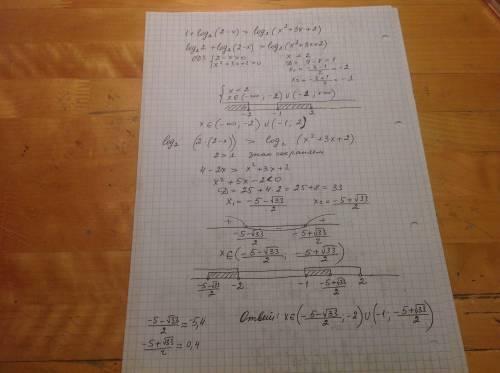 1 + log₂(2-x) > log₂(x²+3x+2)
log₂2 + log₂(2-x) > log₂(x²+3x+2)
ОДЗ { 2-x>0 x<2
{ x²+3x+2>0 D = 9-8 = 1
x₁ = (-3-1)/2 = -2
x₂ = (-3+1)/2 = -1
{ x<2
{ x∈(-∞; -2) ∪ (-1; +∞)
-2 -1 2
x∈(-∞; -2) ∪ (-1; 2)
log₂(2·(2-x)) > log₂(x²+3x+2)
2>1 знак сохраняем
4-2x > x²+3x+2
x²+5x-2<0
D = 25+4·2 = 25+8 = 33
x₁ = (-5-√33)/2 x₂ = (-5+√33)/2
+ - +
(-5-√33)/2 (-5+√33)/2
x∈((-5-√33)/2; (-5+√33)/2)
(-5-√33)/2 -2 -1 (-5+√33)/2 2
(-5-√33)/2 = -5,4
(-5+√33)/2 = 0,4
Ответ: x∈((-5-√33)/2; -2) ∪ (-1; (-5+√33)/2)